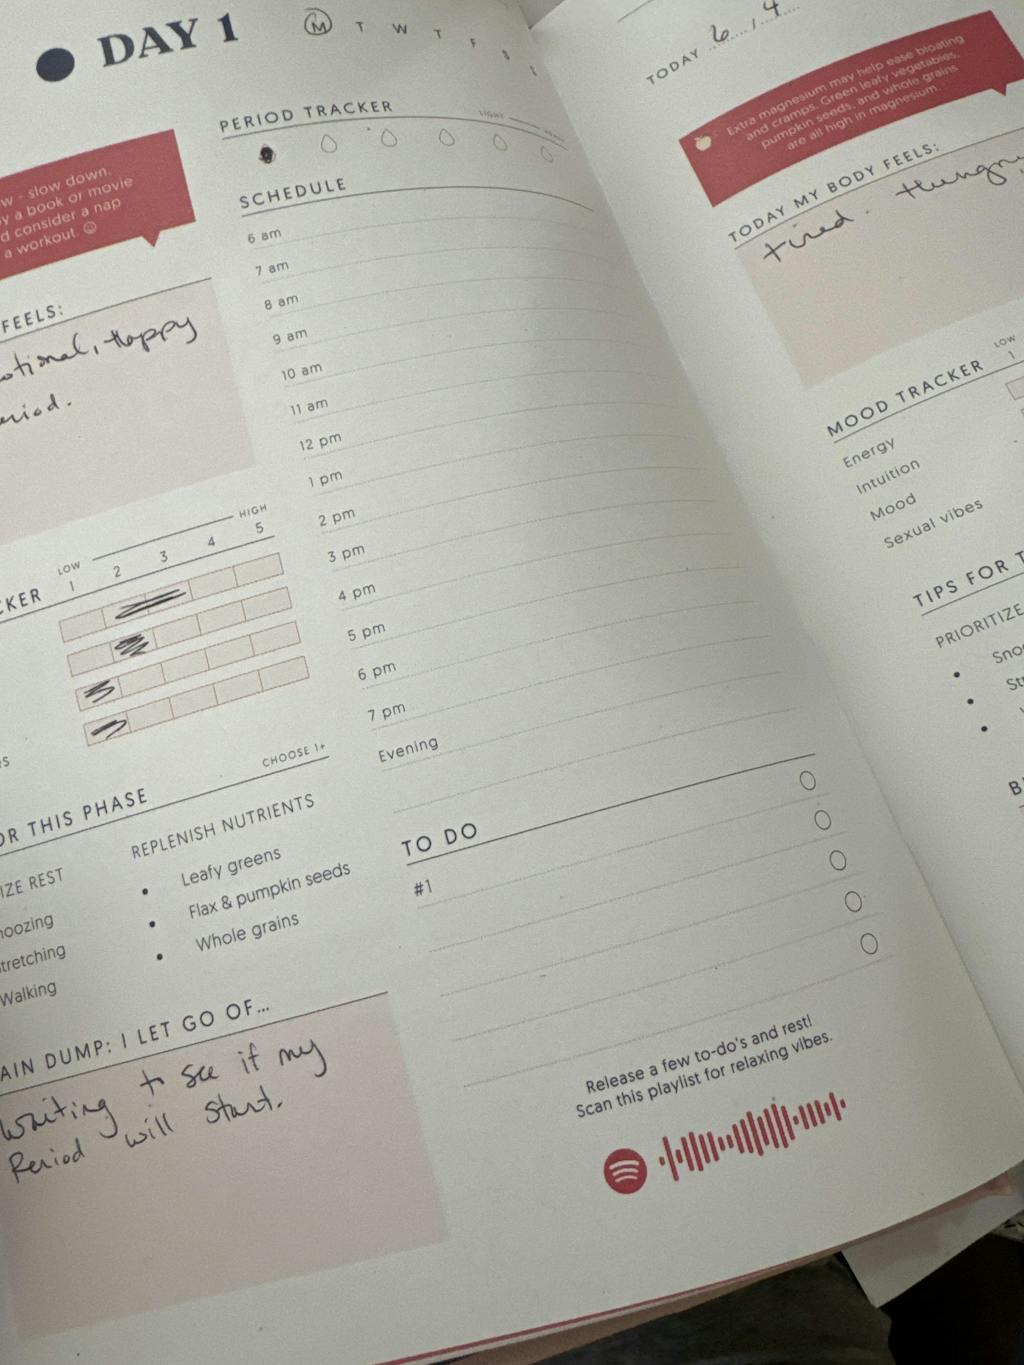 DAY 1
M T W T F S S
w - slow down.
y a book or movie
d consider a nap
a workout.
FEELS:
otional, Happy
eriod.
LOW HIGH
1 2 3 4 5
CKER
es
CHOOSE 1+
OR THIS PHASE
IZE REST
noozing
tretching
Walking
REPLENISH NUTRIENTS
• Leafy greens
• Flax & pumpkin seeds
• Whole grains
AIN DUMP: I LET GO OF...
Waiting to see if my
Period will start.
PERIOD TRACKER
LIGHT HEAVY
SCHEDULE
6 am
7 am
8 am
9 am
10 am
11 am
12 pm
1 pm
2 pm
3 pm
4 pm
5 pm
6 pm
7 pm
Evening
TO DO
#1
Release a few to-do's and rest!
Scan this playlist for relaxing vibes.
TODAY 6 / 4
Extra magnesium may help ease bloating
and cramps. Green leafy vegetables,
pumpkin seeds, and whole grains
are all high in magnesium.
TODAY MY BODY FEELS:
tired - Hungry
MOOD TRACKER
LOW
1
Energy
Intuition
Mood
Sexual vibes
TIPS FOR T
PRIORITIZE
• Snoo
• Str
•
B